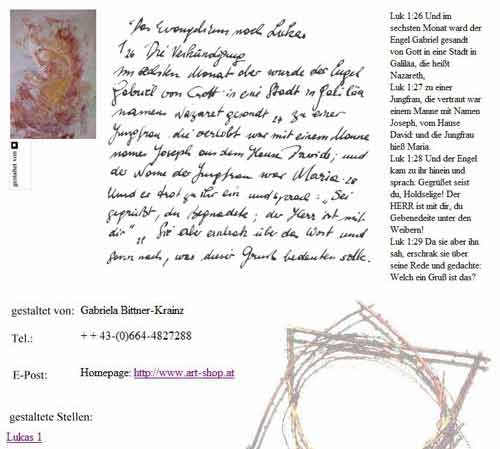 "Das Evangelium nach Lukas
1,26 Die Verkündigung
Im sechsten Monat aber wurde der Engel
Gabriel von Gott in eine Stadt in Galiläa
namens Nazaret gesandt 27 zu einer
Jungfrau, die verlobt war mit einem Manne
namens Joseph aus dem Hause Davids; und
der Name der Jungfrau war Maria. 28
Und er trat zu ihr ein und sprach: "Sei
gegrüßt, du Begnadete; der Herr ist mit
dir" 29 Sie aber erschrak über das Wort und
sann nach, was dieser Gruß bedeuten solle.
gestaltet von:
Luk 1:26 Und im
sechsten Monat ward der
Engel Gabriel gesandt
von Gott in eine Stadt in
Galiläa, die heißt
Nazareth,
Luk 1:27 zu einer
Jungfrau, die vertraut war
einem Manne mit Namen
Joseph, vom Hause
David: und die Jungfrau
hieß Maria.
Luk 1:28 Und der Engel
kam zu ihr hinein und
sprach: Gegrüßet seist
du, Holdselige! Der
HERR ist mit dir, du
Gebenedeite unter den
Weibern!
Luk 1:29 Da sie aber ihn
sah, erschrak sie über
seine Rede und gedachte:
Welch ein Gruß ist das?
gestaltet von: Gabriela Bittner-Krainz
Tel.: + + 43-(0)664-4827288
E-Post: Homepage: http://www.art-shop.at
gestaltete Stellen:
Lukas 1